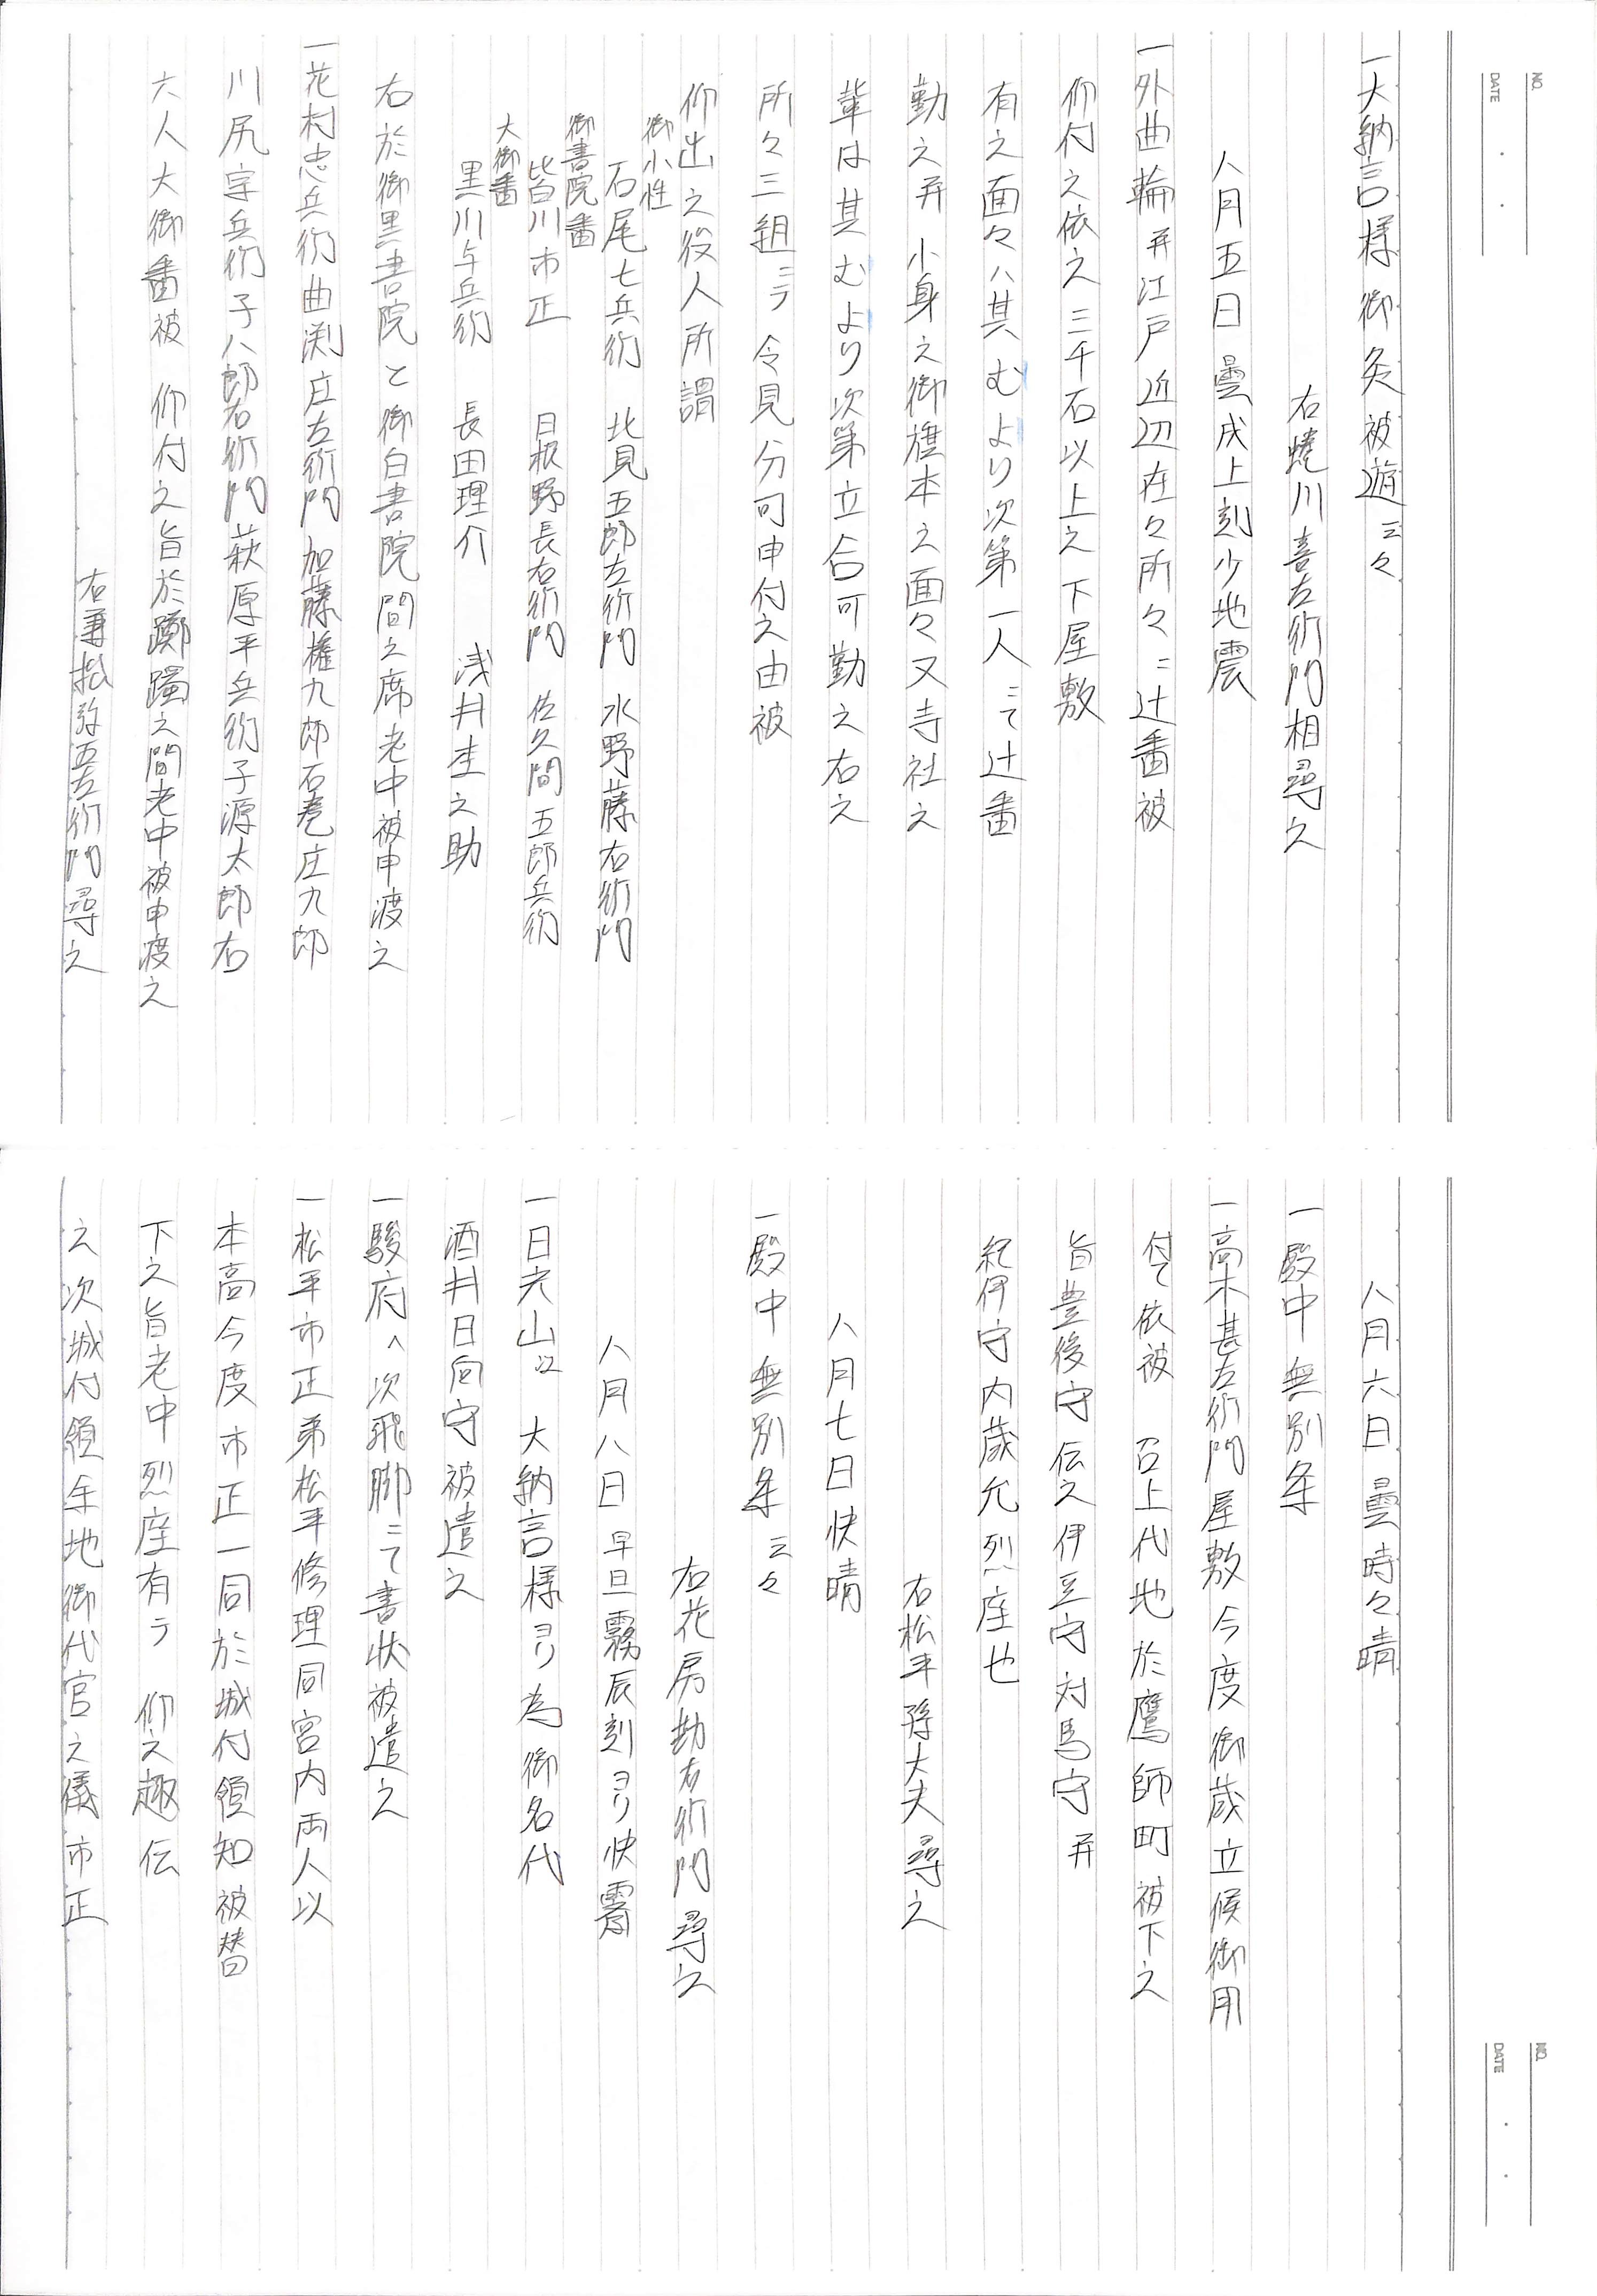 NO.
DATE
一大納言様御灸被遊云々
右蜷川喜左衛門相尋之
八月五日曇戌上刻少地震
一外曲輪并江戸近辺在々所々ニ辻番被
仰付之依之三千石以上之下屋敷
有之面々ハ其むより次第一人ニて辻番
勤之并小身之御旗本之面々又寺社之
輩は其むより次第立合可勤之右之
所々三組ニテ令見分可申付之由被
仰出之役人所謂
御小性
石尾七兵衛 北見五郎左衛門 水野藤右衛門
御書院番
皆川市正 日根野長右衛門 佐久間五郎兵衛
大御番
黒川与兵衛 長田理介 浅井杢之助
右於御黒書院と御白書院間之席老中被申渡之
一花村忠兵衛曲渕庄左衛門加藤権九郎石巻庄九郎
川尻宇兵衛子八郎右衛門萩原平兵衛子源太郎右
六人大御番被 仰付之旨於躑躅之間老中被申渡之
右兼松弥五左衛門尋之
八月六日曇時々晴
一殿中無別条
一高木甚左衛門屋敷今度御蔵立候御用
付て依被 召上代地於鷹師町被下之
旨豊後守伝之伊豆守対馬守并
紀伊守内蔵允烈座也
右松平孫大夫尋之
八月七日快晴
一殿中無別条云々
右花房勘右衛門尋之
八月八日早旦霧辰刻ヨリ快霽
一日光山以 大納言様ヨリ為御名代
酒井日向守被遣之
一駿府へ次飛脚ニて書状被遣之
一松平市正弟松平修理同宮内両人以
本高今度市正一同於城付領知被替
下之旨老中烈座有テ 仰之趣伝
之次城付領余地御代官之儀市正
NO.
DATE